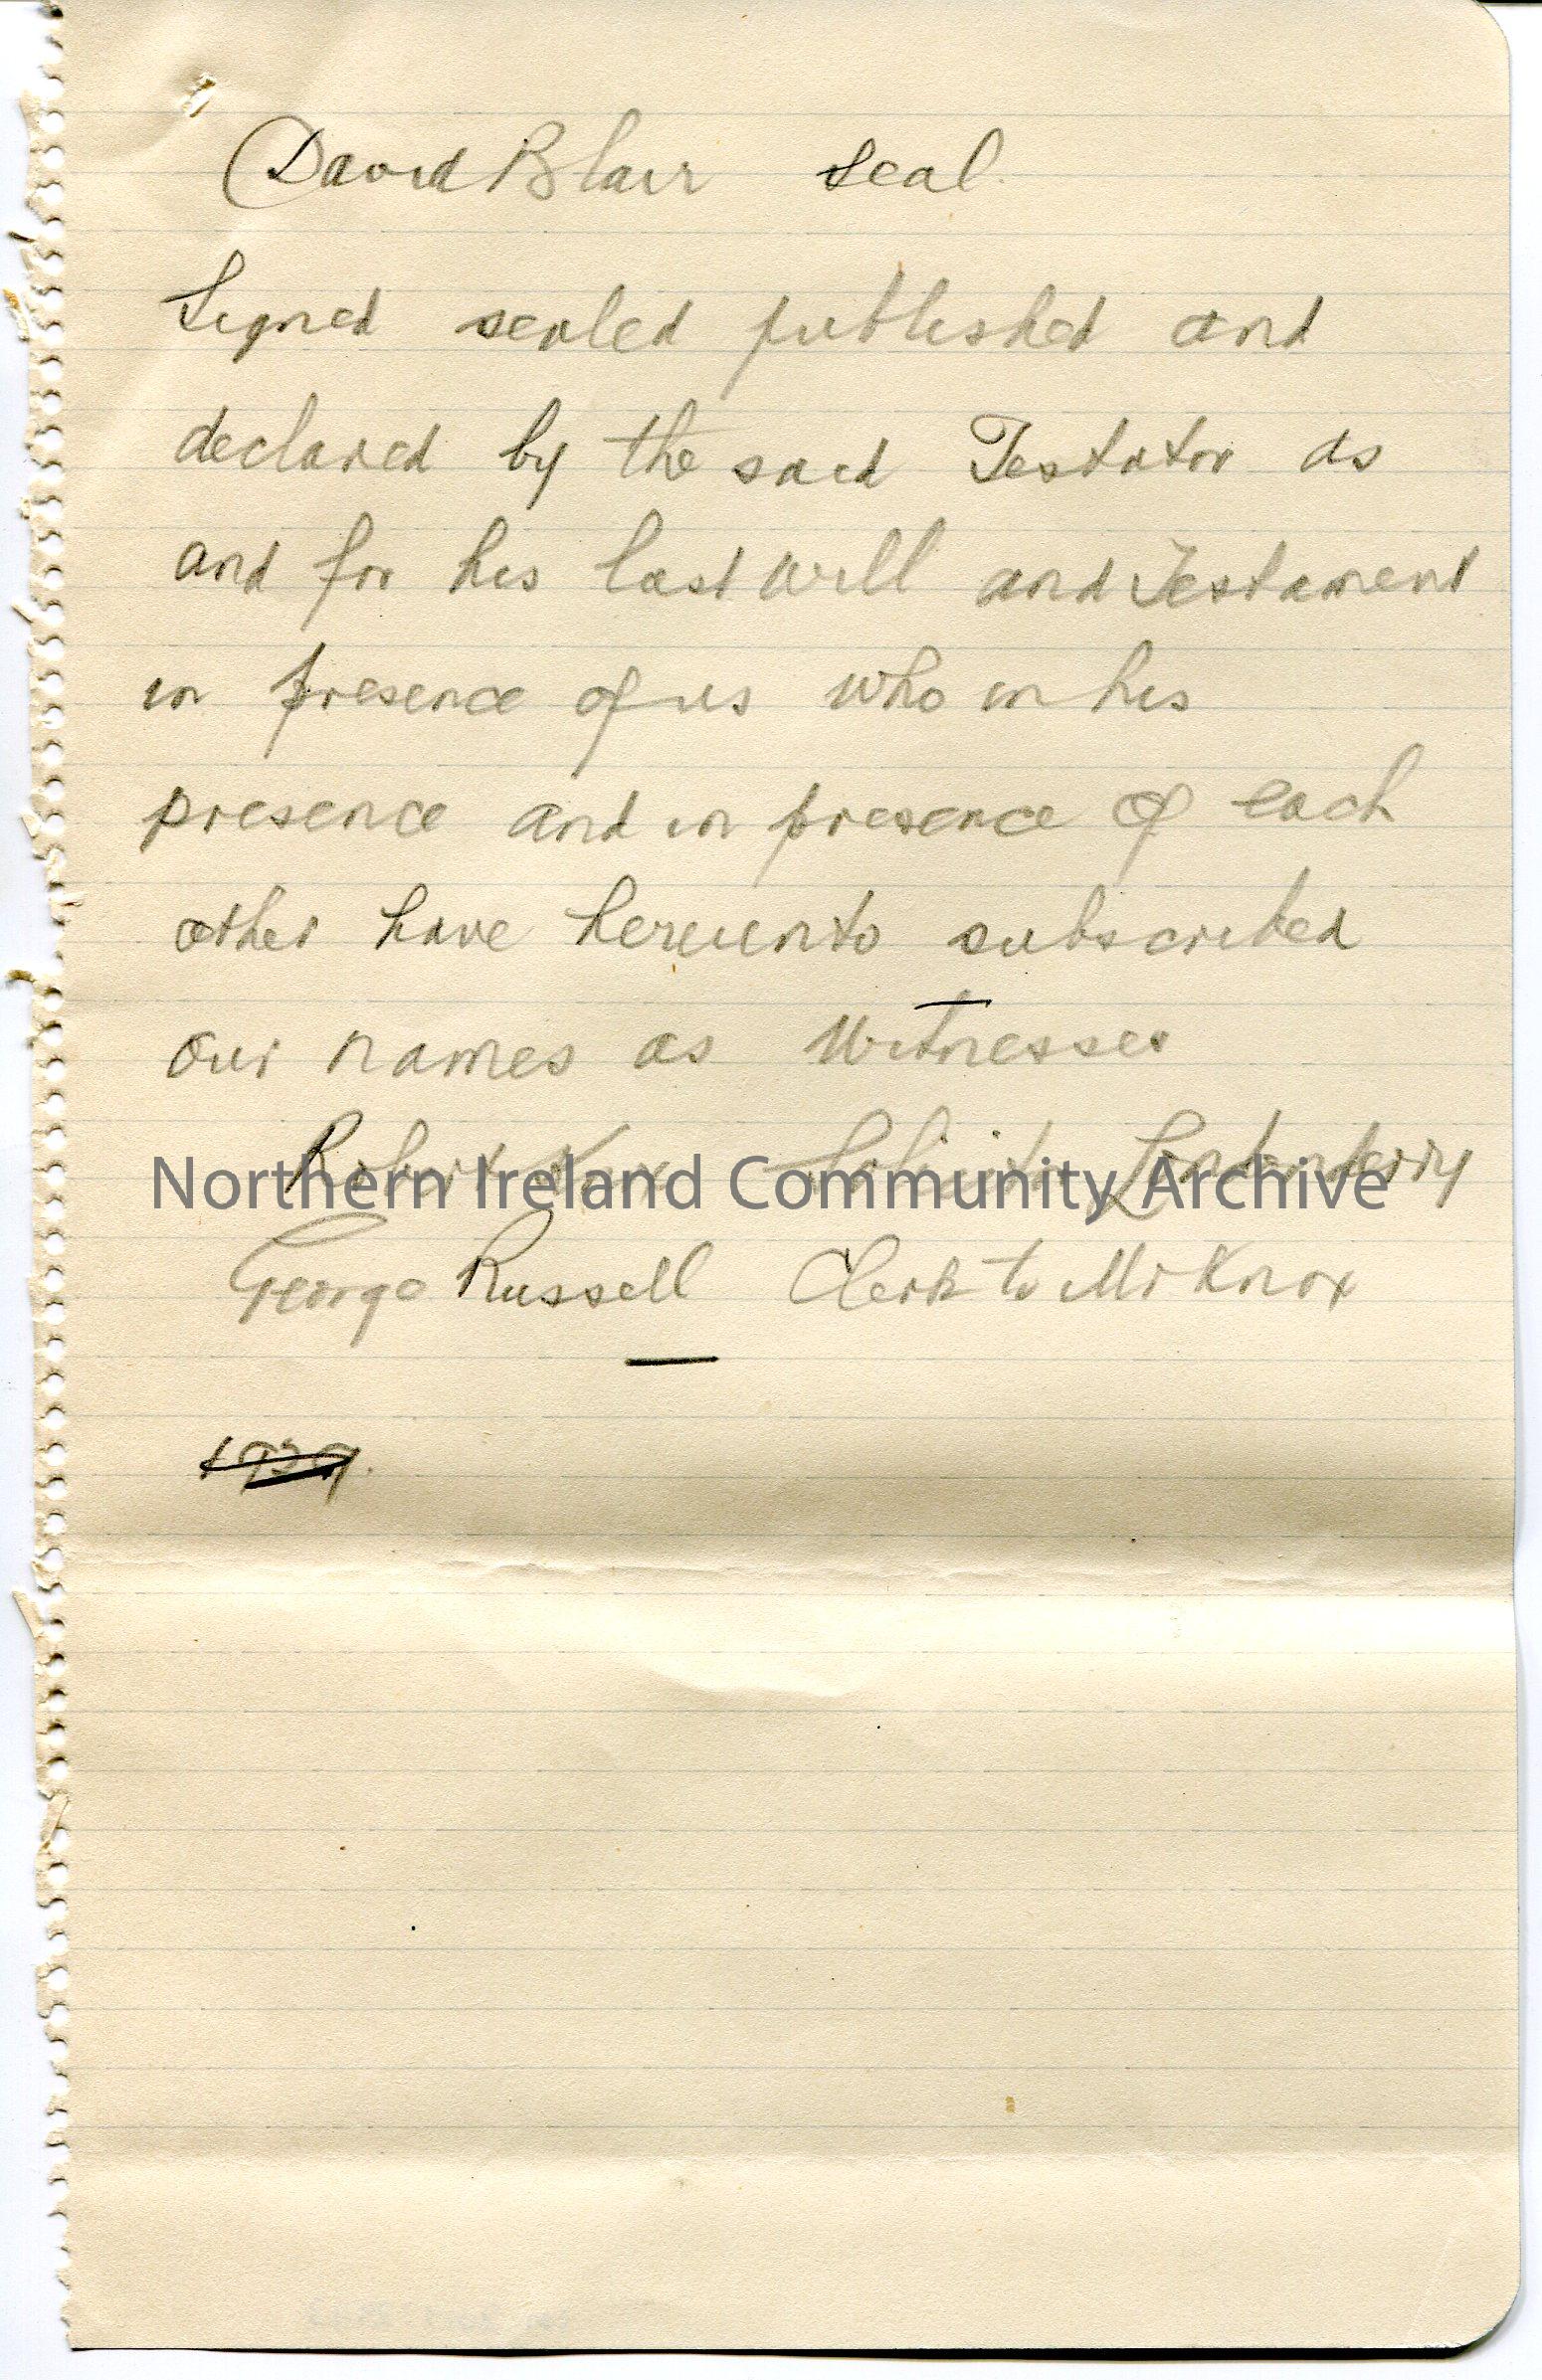 David Blair Seal.
Signed sealed published and
declared by the said Testator as
and for his last Will and Testament
in presence of us who in his
presence and in presence of each
other have hereunto subscribed
our names as Witnesses
Robert Knox Solicitor Londonderry
Northern Ireland Community Archive
George Russell Clerk to Mr Knox
1929.